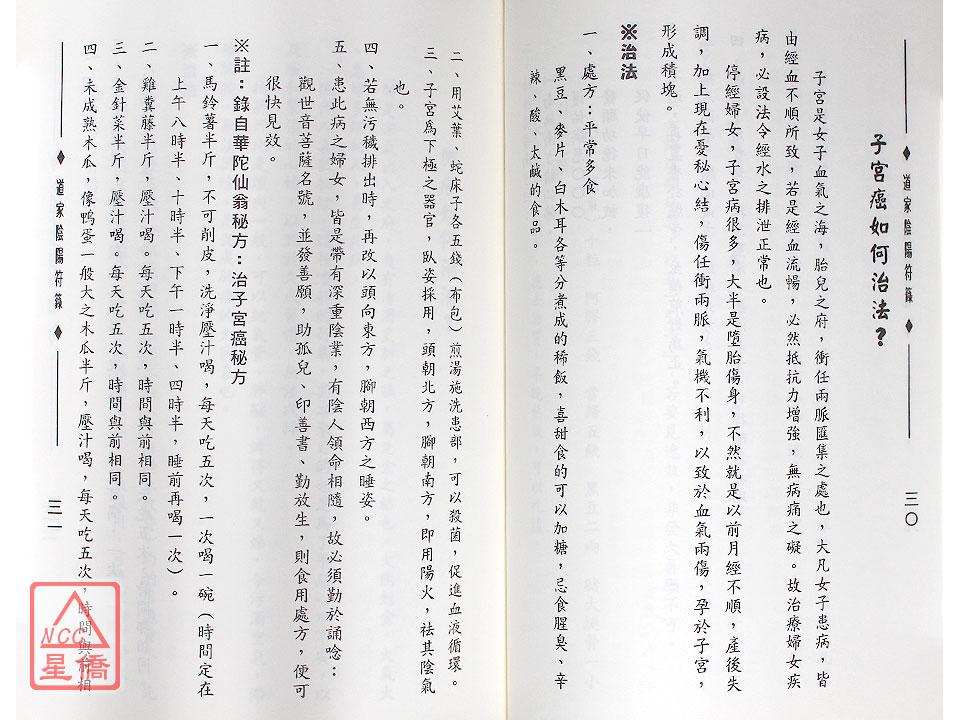 道家陰陽符籙
三〇
子宮癌如何治法？
子宮是女子血氣之海，胎兒之府，衝任兩脈匯集之處也，大凡女子患病，皆
由經血不順所致，若是經血流暢，必然抵抗力增強，無病痛之礙。故治療婦女疾
病，必設法令經水之排泄正常也。
停經婦女，子宮病很多，大半是墮胎傷身，不然就是以前月經不順，產後失
調，加上現在憂秘心結，傷任衝兩脈，氣機不利，以致於血氣兩傷，孕於子宮，
形成積塊。
※治法
一、處方：平常多食
黑豆、麥片、白木耳各等分煮成的稀飯，喜甜食的可以加糖，忌食腥臭、辛
辣、酸、太鹹的食品。
二、用艾葉、蛇床子各五錢（布包）煎湯施洗患部，可以殺菌，促進血液循環。
三、子宮爲下極之器官，臥姿採用，頭朝北方，腳朝南方，即用陽火，祛其陰氣
也。
四、若無污穢排出時，再改以頭向東方，腳朝西方之睡姿。
五、患此病之婦女，皆是帶有深重陰業，有陰人領命相隨，故必須勤於誦唸：
觀世音菩薩名號，並發善願，助孤兒、印善書、勤放生，則食用處方，便可
很快見效。
※註：錄自華陀仙翁秘方：治子宮癌秘方
一、馬鈴薯半斤，不可削皮，洗淨壓汁喝，每天吃五次，一次喝一碗（時間定在
上午八時半、十時半、下午一時半、四時半，睡前再喝一次）。
二、雞糞藤半斤，壓汁喝。每天吃五次，時間與前相同。
三、金針菜半斤，壓汁喝。每天吃五次，時間與前相同。
四、未成熟木瓜，像鴨蛋一般大之木瓜半斤，壓汁喝，每天吃五次，時間與前相
道家陰陽符籙
三一
NCC
星僑